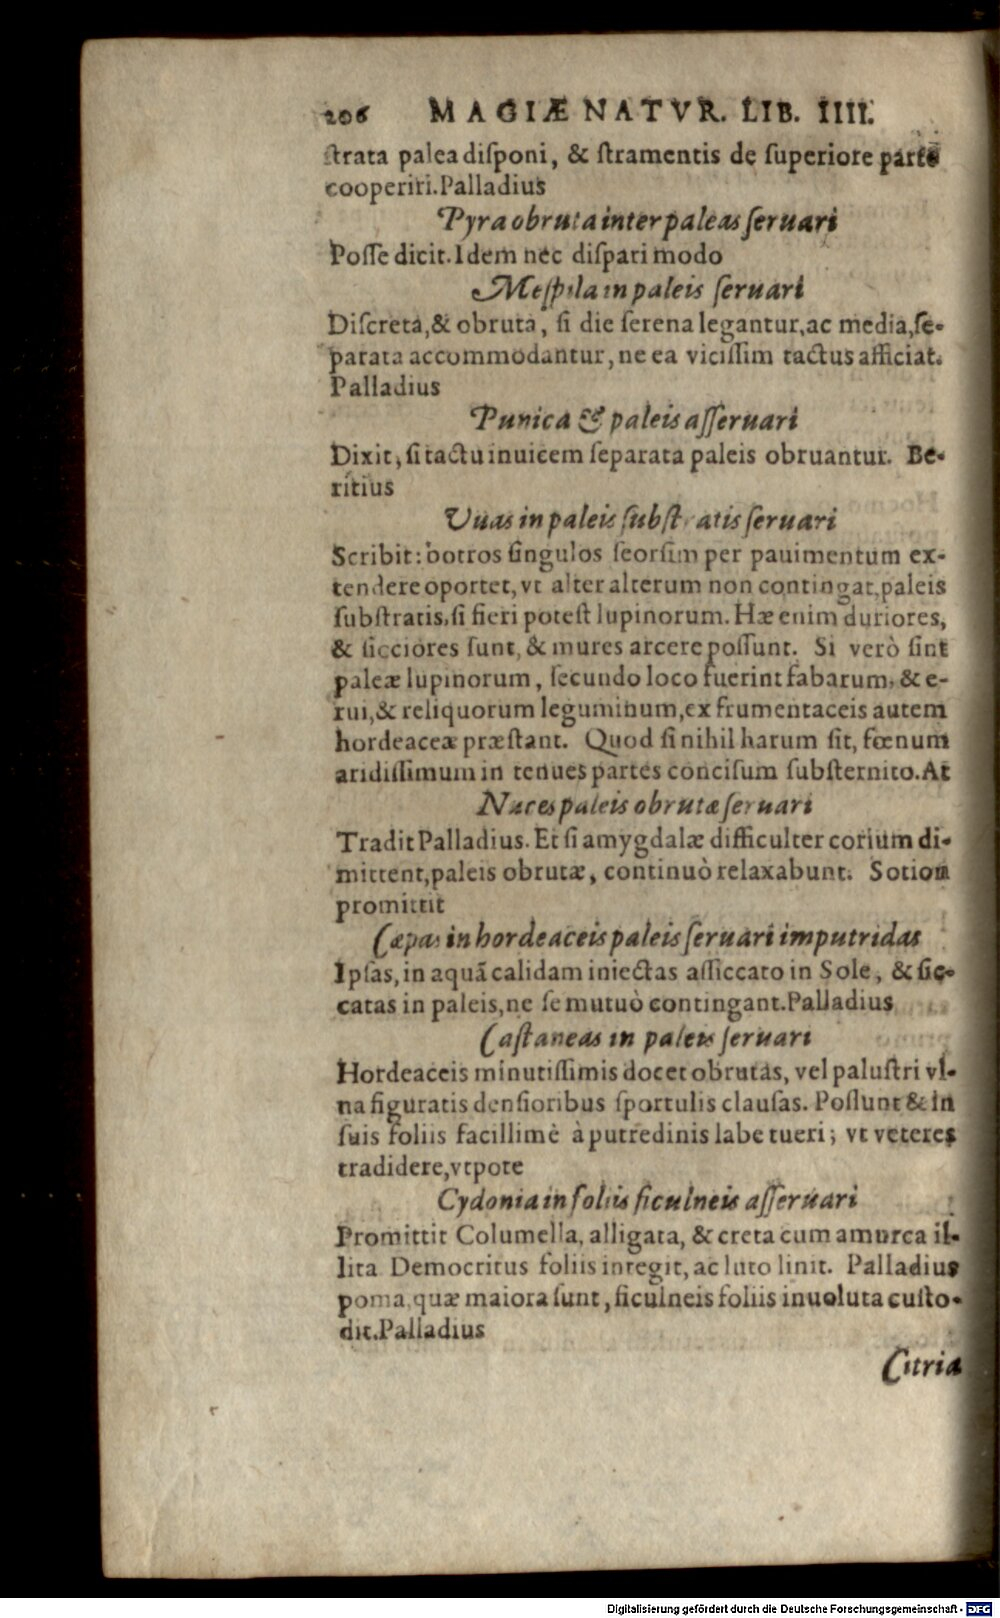 206 MAGIÆ NATVR. LIB. IIII.
ſtrata palea diſponi, & ſtramentis de ſuperiore parte
cooperiri. Palladius
Pyra obruta inter paleas ſeruari
Poſſe dicit. Idem nec diſpari modo
Meſpila in paleis ſeruari
Diſcreta, & obruta, ſi die ſerena legantur, ac media, ſe-
parata accommodantur, ne ea viciſſim tactus afficiat.
Palladius
Punica & paleis aſſeruari
Dixit, ſi tactu inuicem ſeparata paleis obruantur. Be-
ritius
Vuas in paleis ſubſtratis ſeruari
Scribit: botros ſingulos ſeorſim per pauimentum ex-
tendere oportet, vt alter alterum non contingat, paleis
ſubſtratis, ſi fieri poteſt lupinorum. Hæ enim duriores,
& ſicciores ſunt, & mures arcere poſſunt. Si verò ſint
paleæ lupinorum, ſecundo loco fuerint fabarum, & e-
rui, & reliquorum leguminum, ex frumentaceis autem
hordeaceæ præſtant. Quod ſi nihil harum ſit, fœnum
aridiſſimum in tenues partes conciſum ſubſternito. At
Nuces paleis obrutæ ſeruari
Tradit Palladius. Et ſi amygdalæ difficulter corium di-
mittent, paleis obrutæ, continuò relaxabunt. Sotion
promittit
Cæpas in hordeaceis paleis ſeruari imputridas
Ipſas, in aquã calidam iniectas aſſiccato in Sole, & ſic-
catas in paleis, ne ſe mutuò contingant. Palladius
Caſtaneas in paleis ſeruari
Hordeaceis minutiſſimis docet obrutas, vel paluſtri vl-
na figuratis denſioribus ſportulis clauſas. Poſſunt & in
ſuis foliis facillimè à putredinis labe tueri; vt veteres
tradidere, vtpote
Cydonia in foliis ficulneis aſſeruari
Promittit Columella, alligata, & creta cum amurca il-
lita Democritus foliis integit, ac luto linit. Palladius
poma, quæ maiora ſunt, ficulneis foliis inuoluta cuſto-
dit. Palladius
Citria
Digitalisierung gefördert durch die Deutsche Forschungsgemeinschaft - DFG